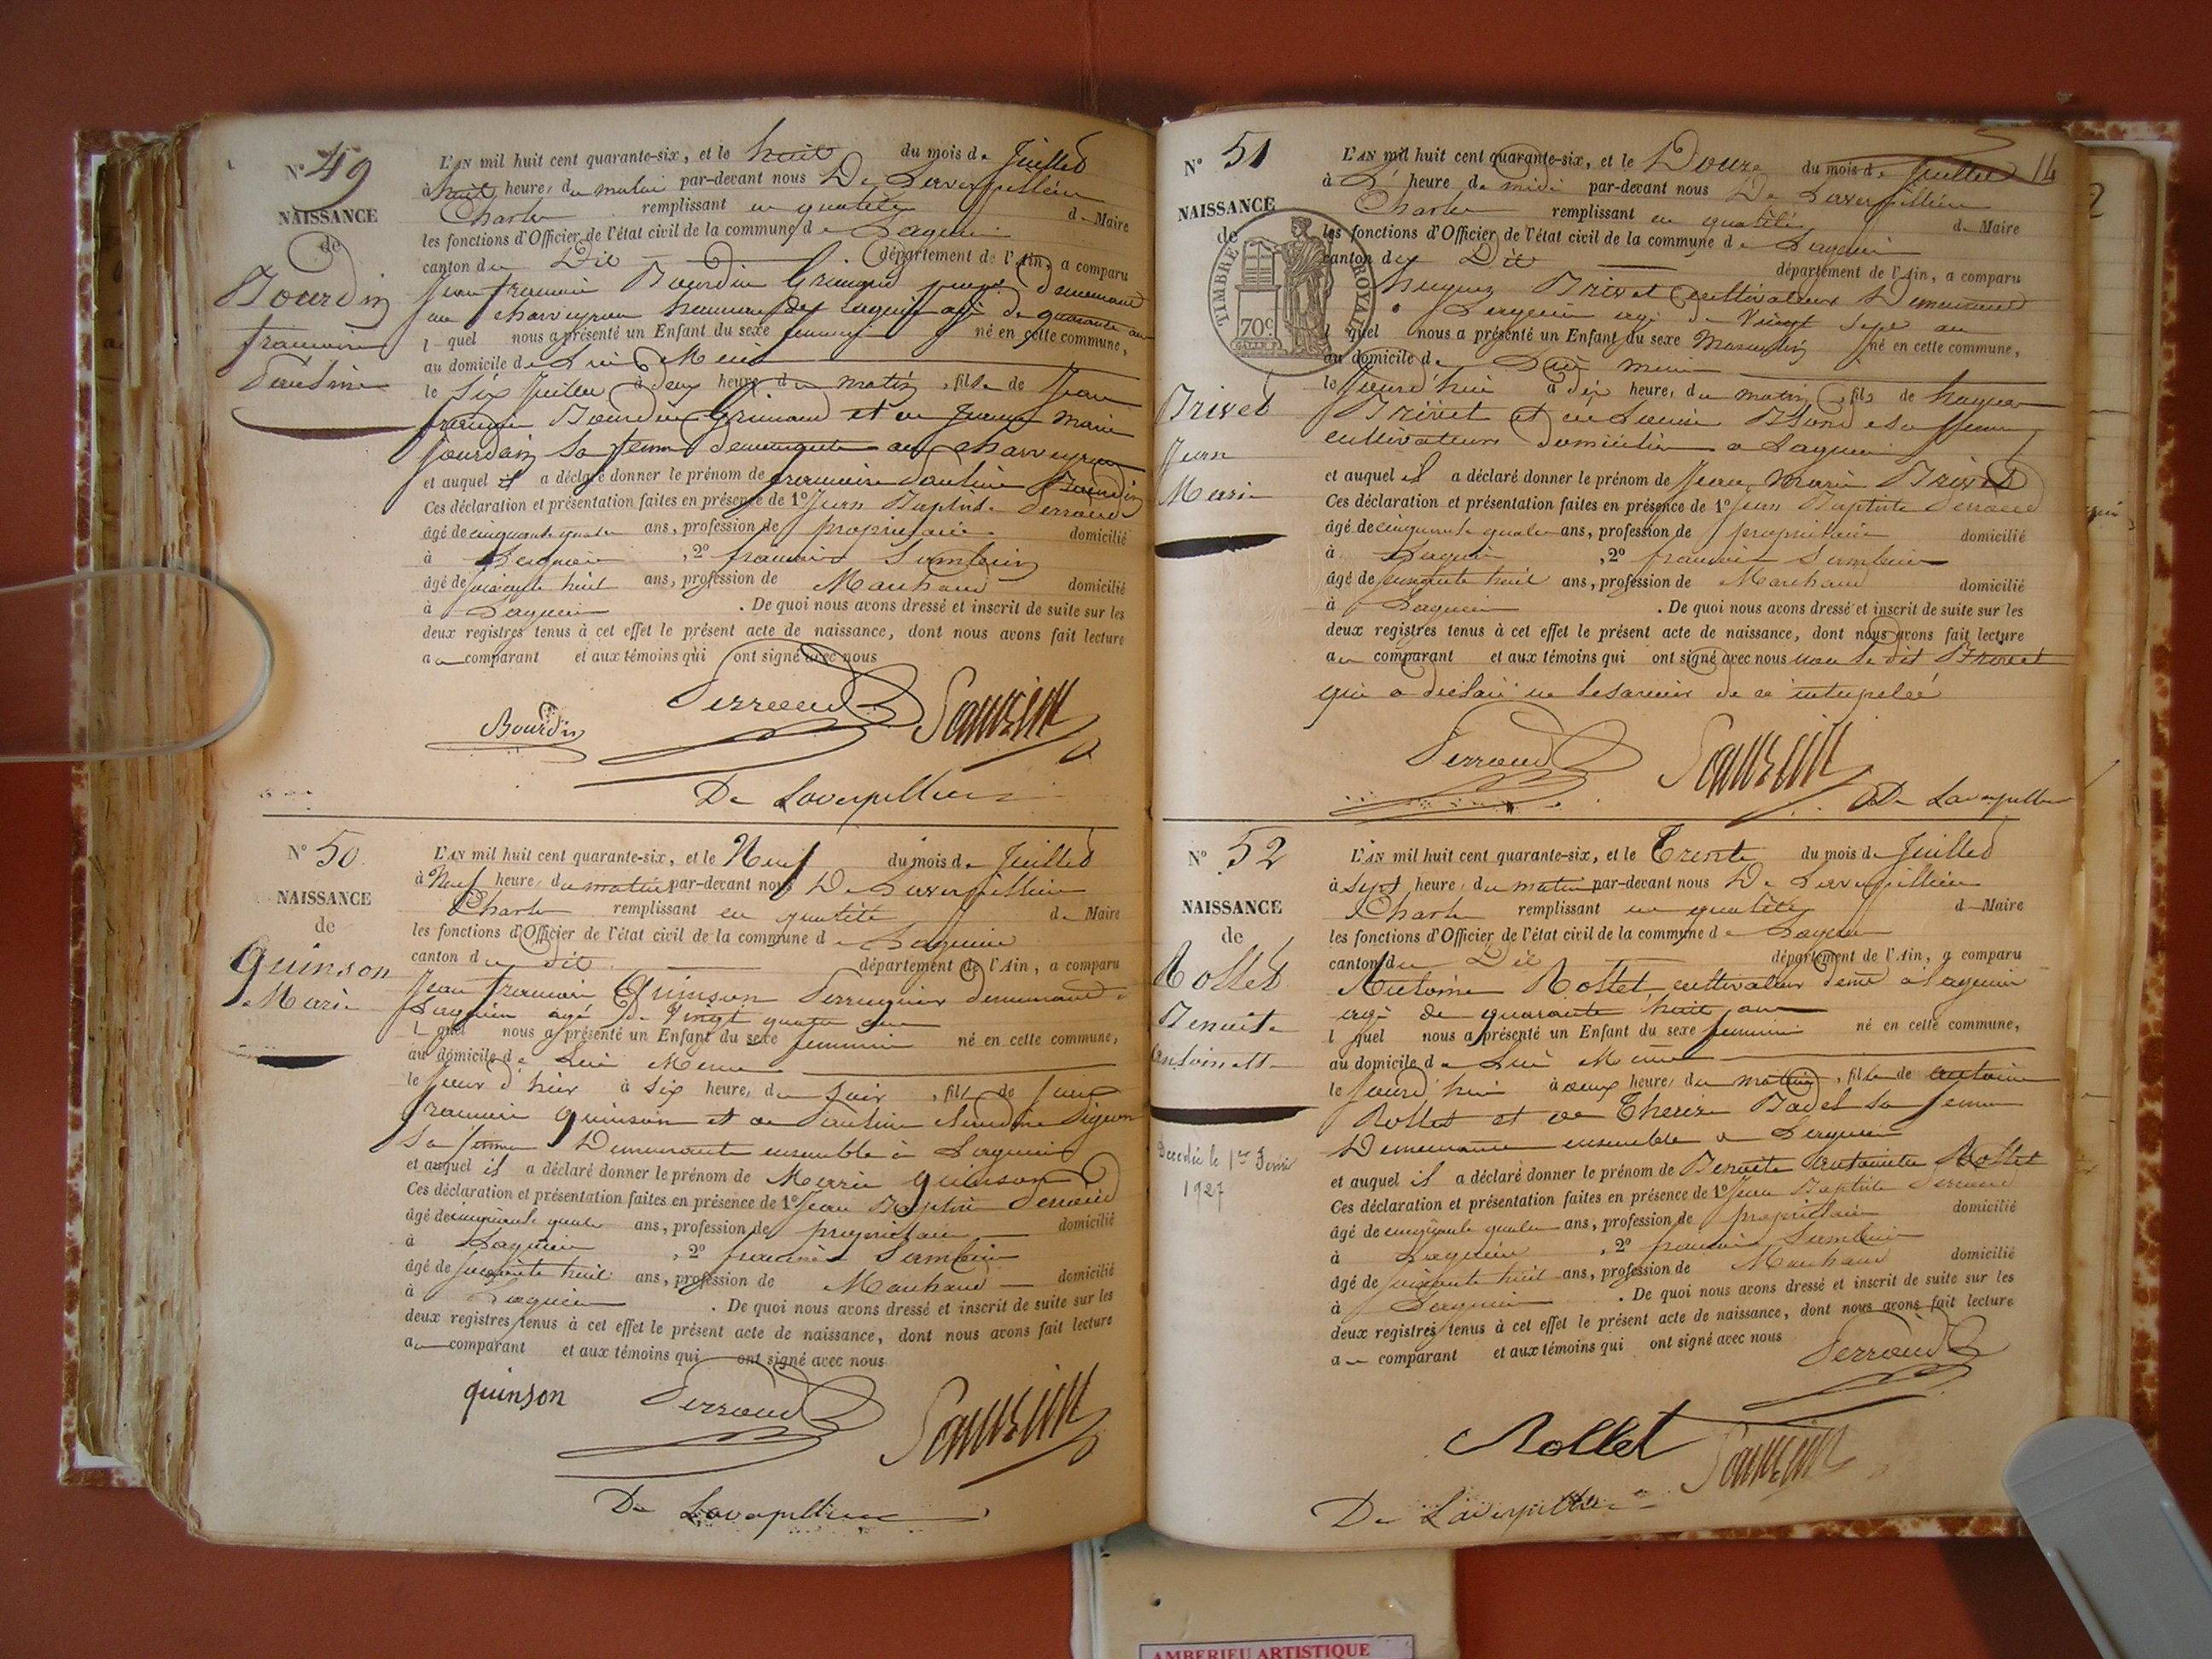 N° 49
NAISSANCE
de
Bourdin
françoise
Pauline
L'AN mil huit cent quarante-six, et le huit du mois de Juillet
à huit heures du matin par-devant nous De Laverpillière
Charles remplissant en qualité de Maire
les fonctions d'Officier de l'état civil de la commune de Lagnieu
canton du Dit département de l'Ain, a comparu
Jean françois Bourdin Grimaud demeurant
au charveyron hameau de Lagnieu agé de quarante ans
lequel nous a présenté un Enfant du sexe féminin né en cette commune,
au domicile de Lui Même
le six Juillet à deux heures du matin, fille de Jean
françois Bourdin Grimaud et de Jeanne Marie
Jourdain sa femme demeurante au charveyron
et auquel il a déclaré donner le prénom de françoise Pauline Bourdin
Ces déclaration et présentation faites en présence de 1° Jean Baptiste Perraud
âgé de cinquante quatre ans, profession de propriétaire domicilié
à Lagnieu, 2° françois
âgé de soixante huit ans, profession de Marchand domicilié
à Lagnieu. De quoi nous avons dressé et inscrit de suite sur les
deux registres tenus à cet effet le présent acte de naissance, dont nous avons fait lecture
au comparant et aux témoins qui ont signé avec nous
Bourdin Perraud
De Laverpillière
N° 50
NAISSANCE
de
Quinson
Marie
L'AN mil huit cent quarante-six, et le Neuf du mois de Juillet
à Neuf heures du matin par-devant nous De Laverpillière
Charles remplissant en qualité de Maire
les fonctions d'Officier de l'état civil de la commune de Lagnieu
canton du dit département de l'Ain, a comparu
Jean françois Quinson Perruquier demeurant à
Lagnieu agé de Vingt quatre ans
lequel nous a présenté un Enfant du sexe féminin né en cette commune,
au domicile de Lui Même
le Jour d'hier à six heures du soir, fille de Jean
françois Quinson et de Pauline
sa femme Demeurante ensemble à Lagnieu
et auquel il a déclaré donner le prénom de Marie Quinson
Ces déclaration et présentation faites en présence de 1° Jean Baptiste Perraud
âgé de cinquante quatre ans, profession de propriétaire domicilié
à Lagnieu, 2° françois
âgé de soixante huit ans, profession de Marchand domicilié
à Lagnieu. De quoi nous avons dressé et inscrit de suite sur les
deux registres tenus à cet effet le présent acte de naissance, dont nous avons fait lecture
au comparant et aux témoins qui ont signé avec nous
quinson Perraud
De Laverpillière
14
N° 51
NAISSANCE
de
TIMBRE ROYAL
70c
Brivet
Jean
Marie
L'AN mil huit cent quarante-six, et le Douze du mois de Juillet
à L' heure de midi par-devant nous De Laverpillière
Charles remplissant en qualité de Maire
les fonctions d'Officier de l'état civil de la commune de Lagnieu
canton du Dit département de l'Ain, a comparu
hugues Brivet cultivateur Demeurant
à Lagnieu agé de Vingt sept ans
lequel nous a présenté un Enfant du sexe Masculin né en cette commune,
au domicile de Lui même
le Jourd'hui à dix heures du matin, fils de hugues
Brivet et de Louise sa femme
cultivateurs domiciliés à Lagnieu
et auquel il a déclaré donner le prénom de Jean Marie Brivet
Ces déclaration et présentation faites en présence de 1° Jean Baptiste Perraud
âgé de cinquante quatre ans, profession de propriétaire domicilié
à Lagnieu, 2° françois
âgé de soixante huit ans, profession de Marchand domicilié
à Lagnieu. De quoi nous avons dressé et inscrit de suite sur les
deux registres tenus à cet effet le présent acte de naissance, dont nous avons fait lecture
au comparant et aux témoins qui ont signé avec nous non le dit Brivet
qui a déclaré ne le savoir de ce interpelé
Perraud
De Laverpillière
N° 52
NAISSANCE
de
Rollet
Benoite
antoinette
Décédée le 1er Février
1927
L'AN mil huit cent quarante-six, et le Trente du mois de Juillet
à sept heures du matin par-devant nous De Laverpillière
Charles remplissant en qualité de Maire
les fonctions d'Officier de l'état civil de la commune de Lagnieu
canton du Dit département de l'Ain, a comparu
Antoine Rollet cultivateur demt à Lagnieu
agé de quarante huit ans
lequel nous a présenté un Enfant du sexe féminin né en cette commune,
au domicile de Lui Même
le Jourd'hui à deux heures du matin, fille de antoine
Rollet et de Thérèse Badel sa femme
Demeurante ensemble à Lagnieu
et auquel il a déclaré donner le prénom de Benoite antoinette Rollet
Ces déclaration et présentation faites en présence de 1° Jean Baptiste Perraud
âgé de cinquante quatre ans, profession de propriétaire domicilié
à Lagnieu, 2° françois
âgé de soixante huit ans, profession de Marchand domicilié
à Lagnieu. De quoi nous avons dressé et inscrit de suite sur les
deux registres tenus à cet effet le présent acte de naissance, dont nous avons fait lecture
au comparant et aux témoins qui ont signé avec nous
Perraud
Rollet
De Laverpillière
AMBERIEU ARTISTIQUE